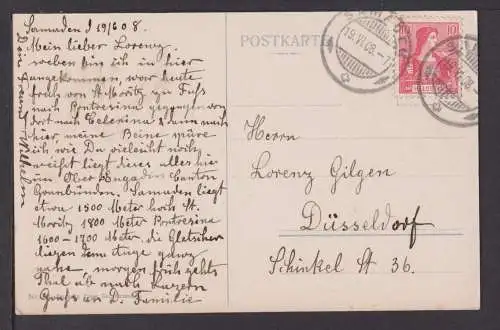 Samaden d 19/6 08.
Mein lieber Lorenz,
soeben bin ich in hier
angekommen, war heute
früh von St Moritz zu Fuß
nach Pontresina gegangen von
dort nach Celerina & dann nach
hier, meine Beine spüre
ich wie Du vielleicht noch
weißt liegt dieses alles hier
im Ober Engadin Canton
Graubünden. Samaden liegt
etwa 1500 Meter hoch St.
Moritz 1800 Meter Pontresina
1600-1700 Meter. die Gletscher
liegen dem Auge ganz
nahe, morgen früh gehts
Thal ab nach Luzern
Gruß an D. Familie
Dein Freund Wilhelm
POSTKARTE
19.VI.08.-7
10
HELVETIA
Herrn
Lorenz Gilgen
Düsseldorf
Schinkel St 36.